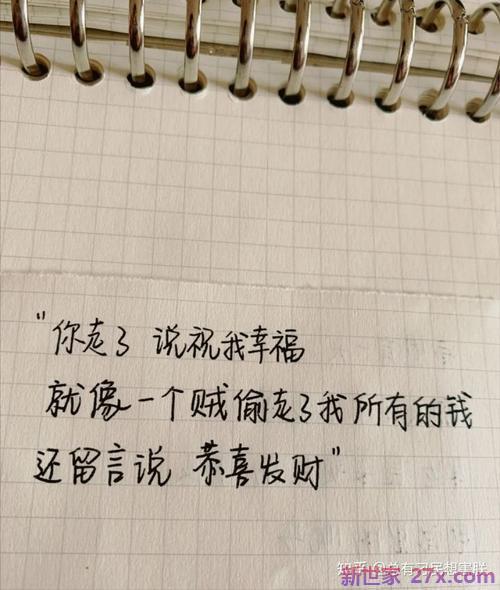 "你走了 说祝我幸福
就像一个贼偷走了我所有的钱
还留言说 恭喜发财"
新世家 27x.com